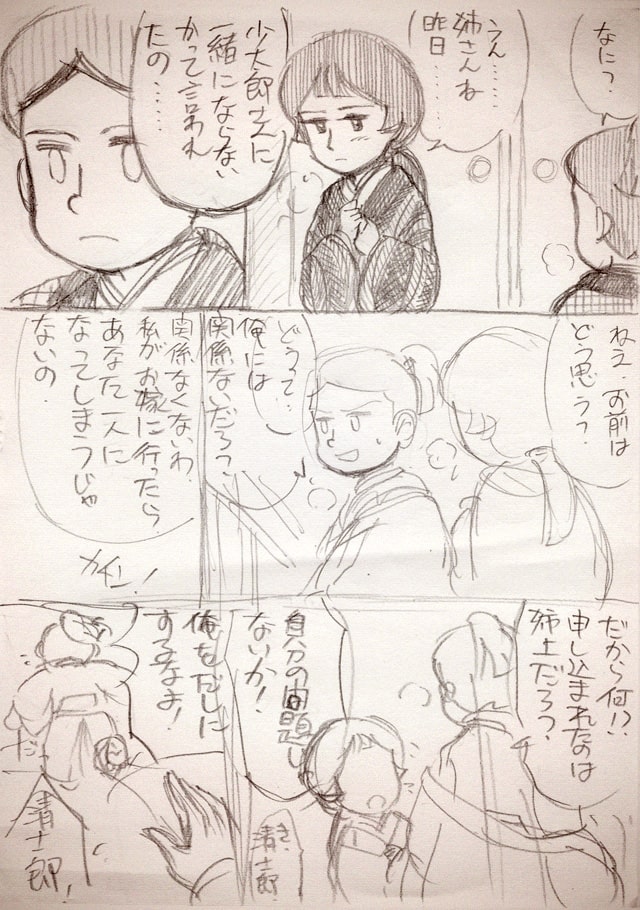 なに?
うん……
姉さんね
昨日……
少太郎さんに
一緒にならない
かって言われ
たの……
ねえ、お前は
どう思う?
どうって…
俺には
関係ないだろ?
関係なくないわ
私がお嫁に行ったら
あなた一人に
なってしまうじゃ
ないの.
だから何!?
申し込まれたのは
姉上だろ?
自分の問題じ
ないか!
俺をだしに
するなよ!
き、
清士郎
だっ
清士郎!